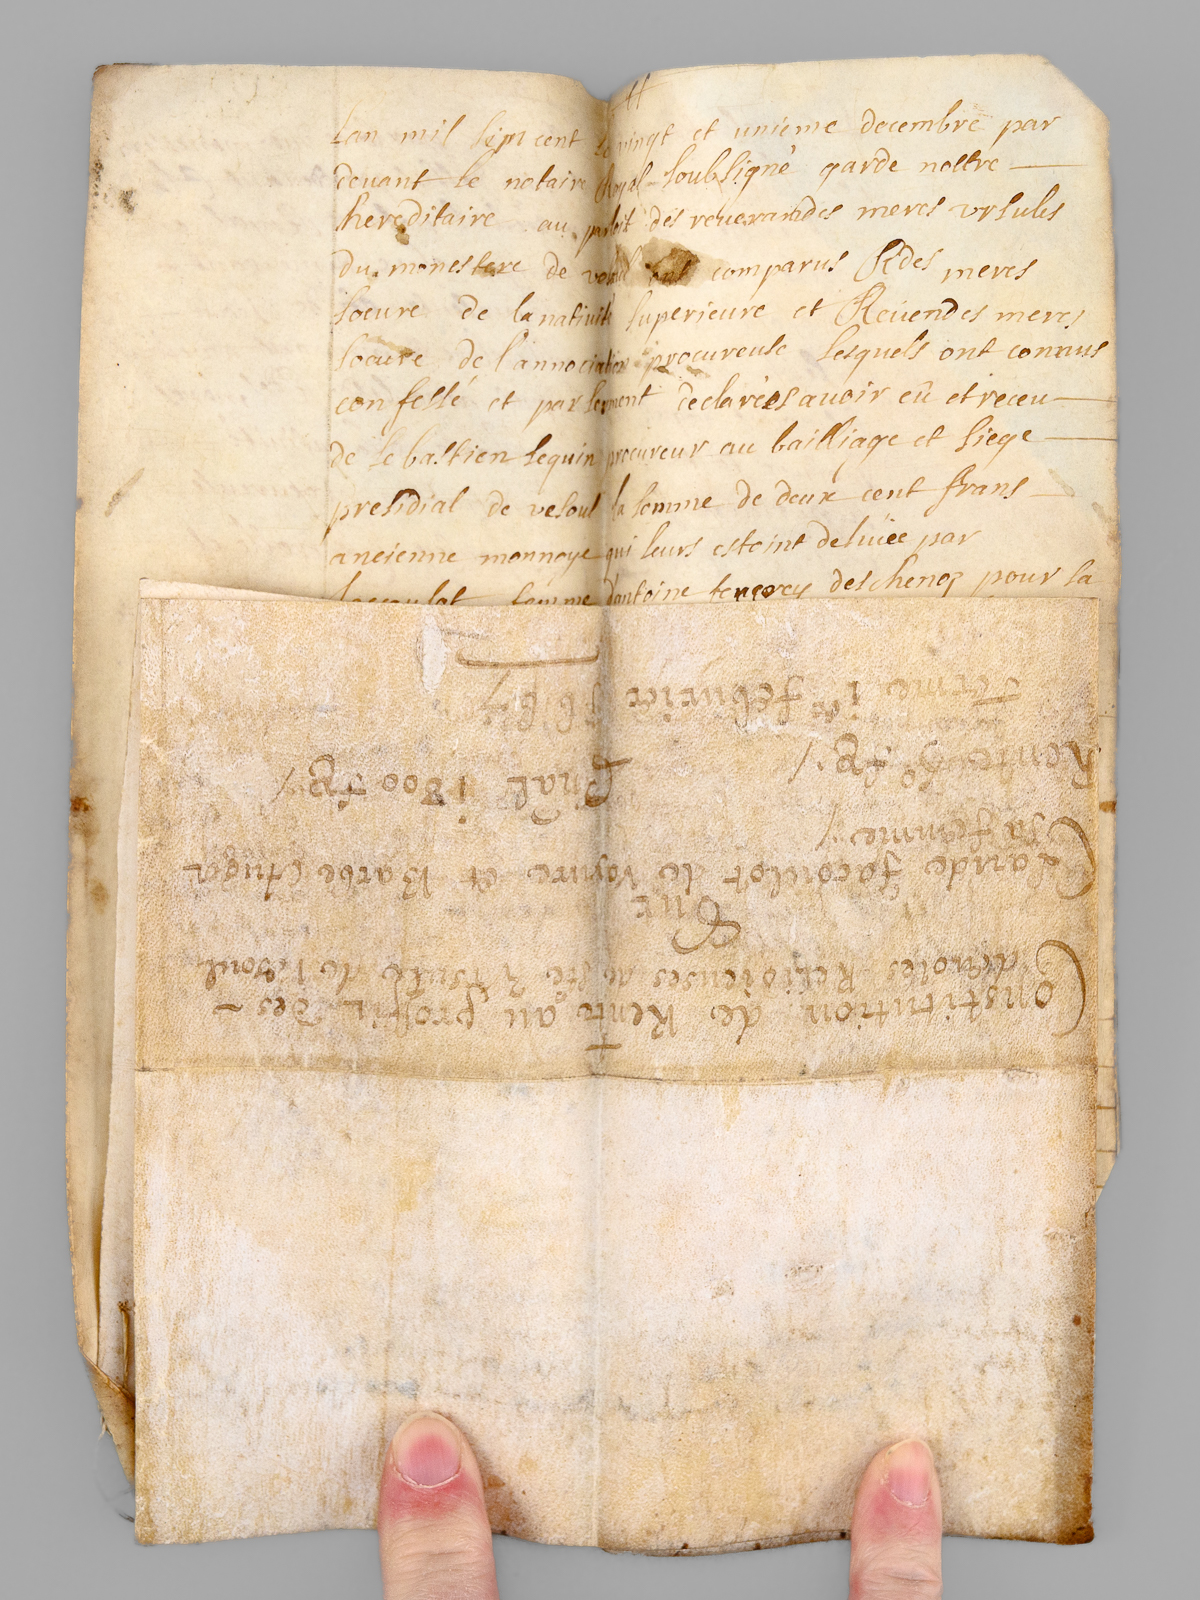 Lan mil sept cent le vingt et unieme decembre par
devant le notaire Royal soubsigné garde nottre
hereditaire au parloit des reverandes meres ursules
du monestere de vesoul ont comparus Rdes meres
soeure de la nativité superieure et Reuendes meres
soeure de l'annociation procureuse lesquels ont connus
confessé et par serment declarées avoir eü et receu
de sebastien sequin procureur au bailliage et siege
presidial de vesoul la somme de deux cent frans
ancienne monnoye qui leurs estoint delivée par
femme dantoine deschenoz pour la
Constitution de Rente au proffit des
devotes Religieuses de Ste Ursule de Vesoul
Sur
Claude Jacoulot de et Barbe
sa femme
Pñal 1800 fr
Rente fr
Terme 1er febvrier